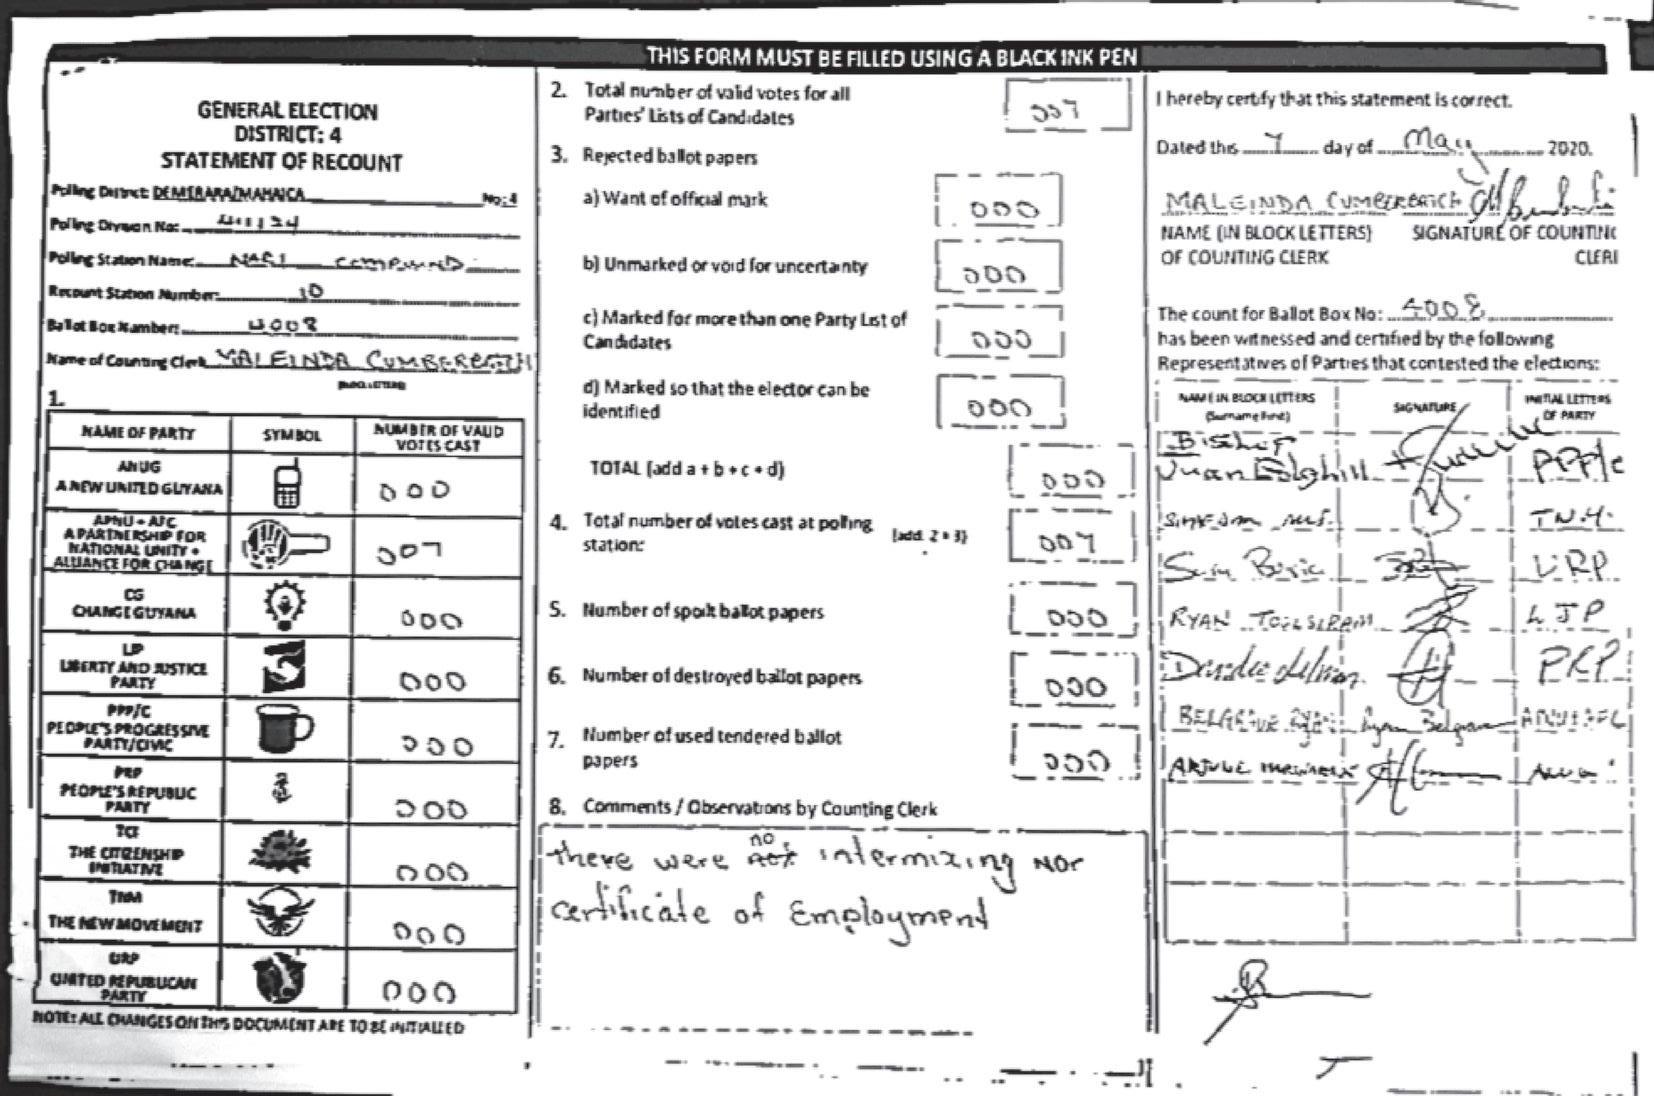 THIS FORM MUST BE FILLED USING A BLACK INK PEN
GENERAL ELECTION
DISTRICT: 4
STATEMENT OF RECOUNT
Polling District: DEMERARA/MAHAICA No: 4
Polling Division No: 411124
Polling Station Name: NARI COMPOUND
Recount Station Number: 10
Ballot Box Number: 4008
Name of Counting Clerk MALEINDA CUMBERBATCH
(BLOCK LETTERS)
1.
NAME OF PARTY SYMBOL NUMBER OF VALID VOTES CAST
ANUG
A NEW UNITED GUYANA 000
APNU + AFC
A PARTNERSHIP FOR
NATIONAL UNITY +
ALLIANCE FOR CHANGE 007
CG
CHANGE GUYANA 000
LJP
LIBERTY AND JUSTICE
PARTY 000
PPP/C
PEOPLE'S PROGRESSIVE
PARTY/CIVIC 000
PRP
PEOPLE'S REPUBLIC
PARTY 000
TCI
THE CITIZENSHIP
INITIATIVE 000
TNM
THE NEW MOVEMENT 000
URP
UNITED REPUBLICAN
PARTY 000
NOTE: ALL CHANGES ON THIS DOCUMENT ARE TO BE INITIALLED
2. Total number of valid votes for all
Parties' Lists of Candidates 007
3. Rejected ballot papers
a) Want of official mark 000
b) Unmarked or void for uncertainty 000
c) Marked for more than one Party List of
Candidates 000
d) Marked so that the elector can be
identified 000
TOTAL (add a + b + c + d) 000
4. Total number of votes cast at polling
station: (add 2 + 3) 007
5. Number of spoilt ballot papers 000
6. Number of destroyed ballot papers 000
7. Number of used tendered ballot
papers 000
8. Comments / Observations by Counting Clerk
There were no intermixing NOR
certificate of Employment
I hereby certify that this statement is correct.
Dated this 7 day of May 2020.
MALEINDA CUMBERBATCH
NAME (IN BLOCK LETTERS) SIGNATURE OF COUNTING
OF COUNTING CLERK CLERK
The count for Ballot Box No: 4008
has been witnessed and certified by the following
Representatives of Parties that contested the elections:
NAME IN BLOCK LETTERS (Surname First) SIGNATURE INITIAL LETTERS OF PARTY
Bishop
Juan Edghill PPP/C
T.N.M.
URP
RYAN LJP
PRP
BELGRAVE RYAN Ryan Belgrave APNU+AFC
ANUG